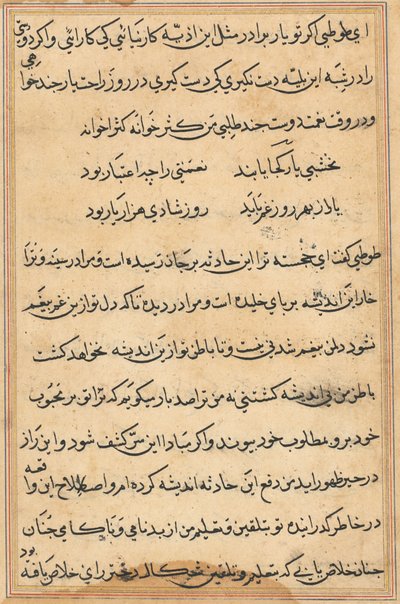 ای طوطی اکر تو یار برادر مثل این اذیّه کار نیائی کی کار ائی و اکر دوستی
را در رتبه این بلیّه دست نکیری کی دست کیری در روز راحت یار چند خواهی
و در وقت نعمت دوست چند طلبی من کثر خوانه کثر اخوانه
نخشبی یار کجا یابند نعمتی را چه اعتبار بود
یار بهر روز غم باید روز شادی هزار یار بود
طوطی کفت ای خجسته ترا این حادثه بر جان رسیده است و مرا در سینه و ترا
خار این اندیشه بر پای خلیده است و مرا در دیده تا که دل تو ازین غم بیغم
نشود دل من بیغم شدنی نیست و تا باطن تو ازین اندیشه نخواهد کشت
باطن من بی اندیشه کشتنی نه من ترا صد بار میکویم که تو اتو بر محبوب
خود برو و مطلوب خود پیوند و اکر مبادا این سرّ کشف شود و این راز
در حیز ظهور اید من رفع این حادثه اندیشه کرده ام و اصطلاح این واقعه
در خاطر کذرانیده تو بتلقین و تعلیم من از بدنامی و ناکامی چنان
خلاص یابی که بتعلیم و تلقین شکال دختر رای خلاص یافته بود